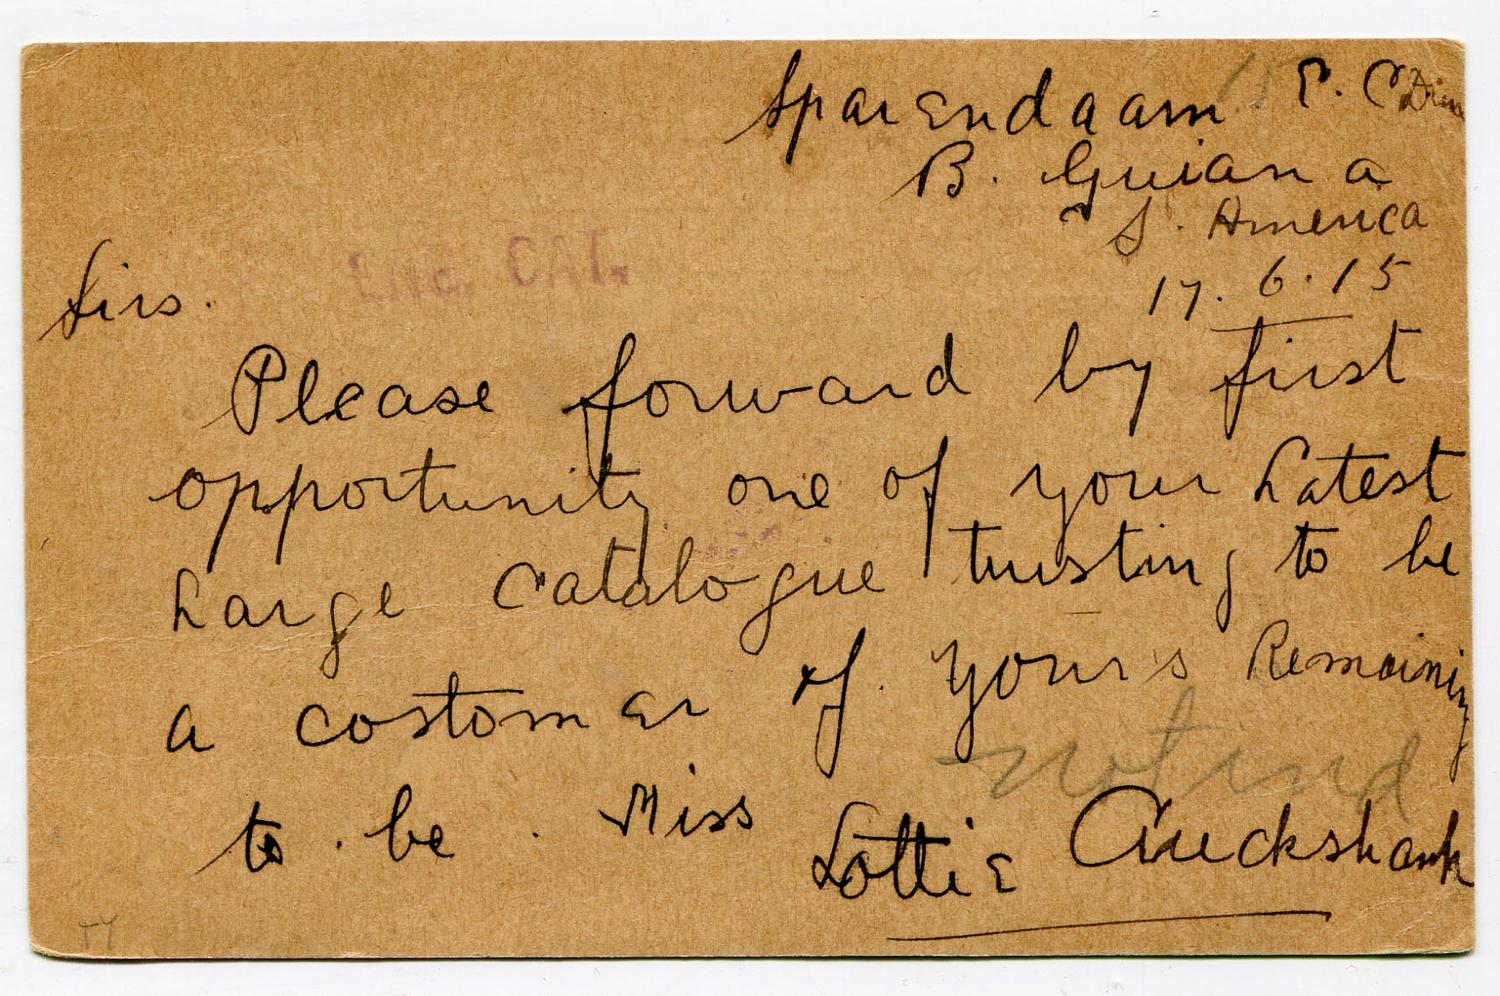 Sparendaam E. C Dem
B. Guiana
S. America
17.6.15
ENG. CAT.
Sirs.
Please forward by first
opportunity one of your Latest
Large Catalogue trusting to be
a costomer of yours Remaining
not ind
to be. Miss Lottie Cruckshank